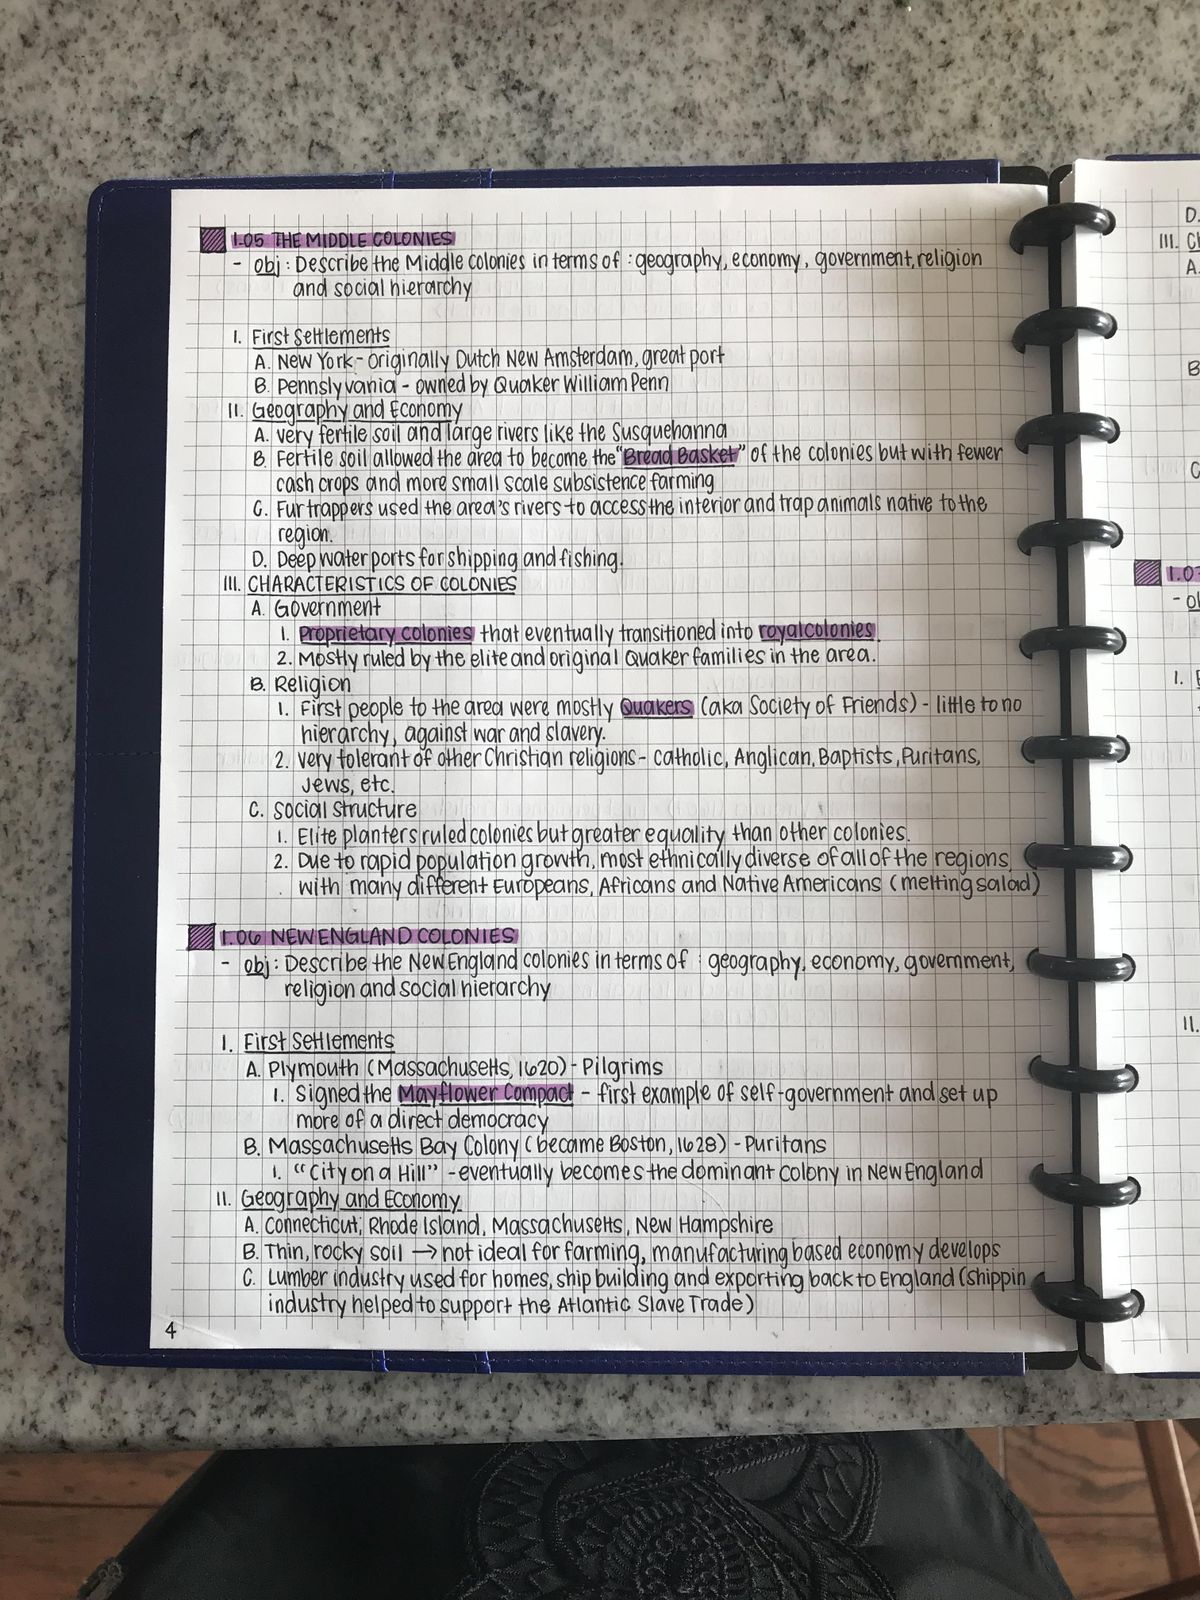 1.05 THE MIDDLE COLONIES
- obj: Describe the Middle colonies in terms of: geography, economy, government, religion
and social hierarchy
I. First Settlements
A. New York - originally Dutch New Amsterdam, great port
B. Pennslyvania - owned by Quaker William Penn
II. Geography and Economy
A. very fertile soil and large rivers like the Susquehanna
B. Fertile soil allowed the area to become the "Bread Basket" of the colonies but with fewer
cash crops and more small scale subsistence farming
C. Fur trappers used the area's rivers to access the interior and trap animals native to the
region.
D. Deep water ports for shipping and fishing.
III. CHARACTERISTICS OF COLONIES
A. Government
1. Proprietary colonies that eventually transitioned into royal colonies.
2. Mostly ruled by the elite and original Quaker families in the area.
B. Religion
1. First people to the area were mostly Quakers (aka Society of Friends) - little to no
hierarchy, against war and slavery.
2. very tolerant of other Christian religions - catholic, Anglican, Baptists, Puritans,
Jews, etc.
C. Social Structure
1. Elite planters ruled colonies but greater equality than other colonies.
2. Due to rapid population growth, most ethnically diverse of all of the regions,
with many different Europeans, Africans and Native Americans (melting salad)
1.06 NEW ENGLAND COLONIES
- obj: Describe the New England colonies in terms of : geography, economy, government,
religion and social hierarchy
I. First Settlements
A. Plymouth (Massachusetts, 1620) - Pilgrims
1. Signed the Mayflower Compact - first example of self-government and set up
more of a direct democracy
B. Massachusetts Bay Colony (became Boston, 1628) - Puritans
1. "City on a Hill" - eventually becomes the dominant colony in New England
II. Geography and Economy
A. Connecticut, Rhode Island, Massachusetts, New Hampshire
B. Thin, rocky soil → not ideal for farming, manufacturing based economy develops
C. Lumber industry used for homes, ship building and exporting back to England (shippin
industry helped to support the Atlantic Slave Trade)
4
D.
III. Ch
A.
B
C
1.07
- ob
I.
II.